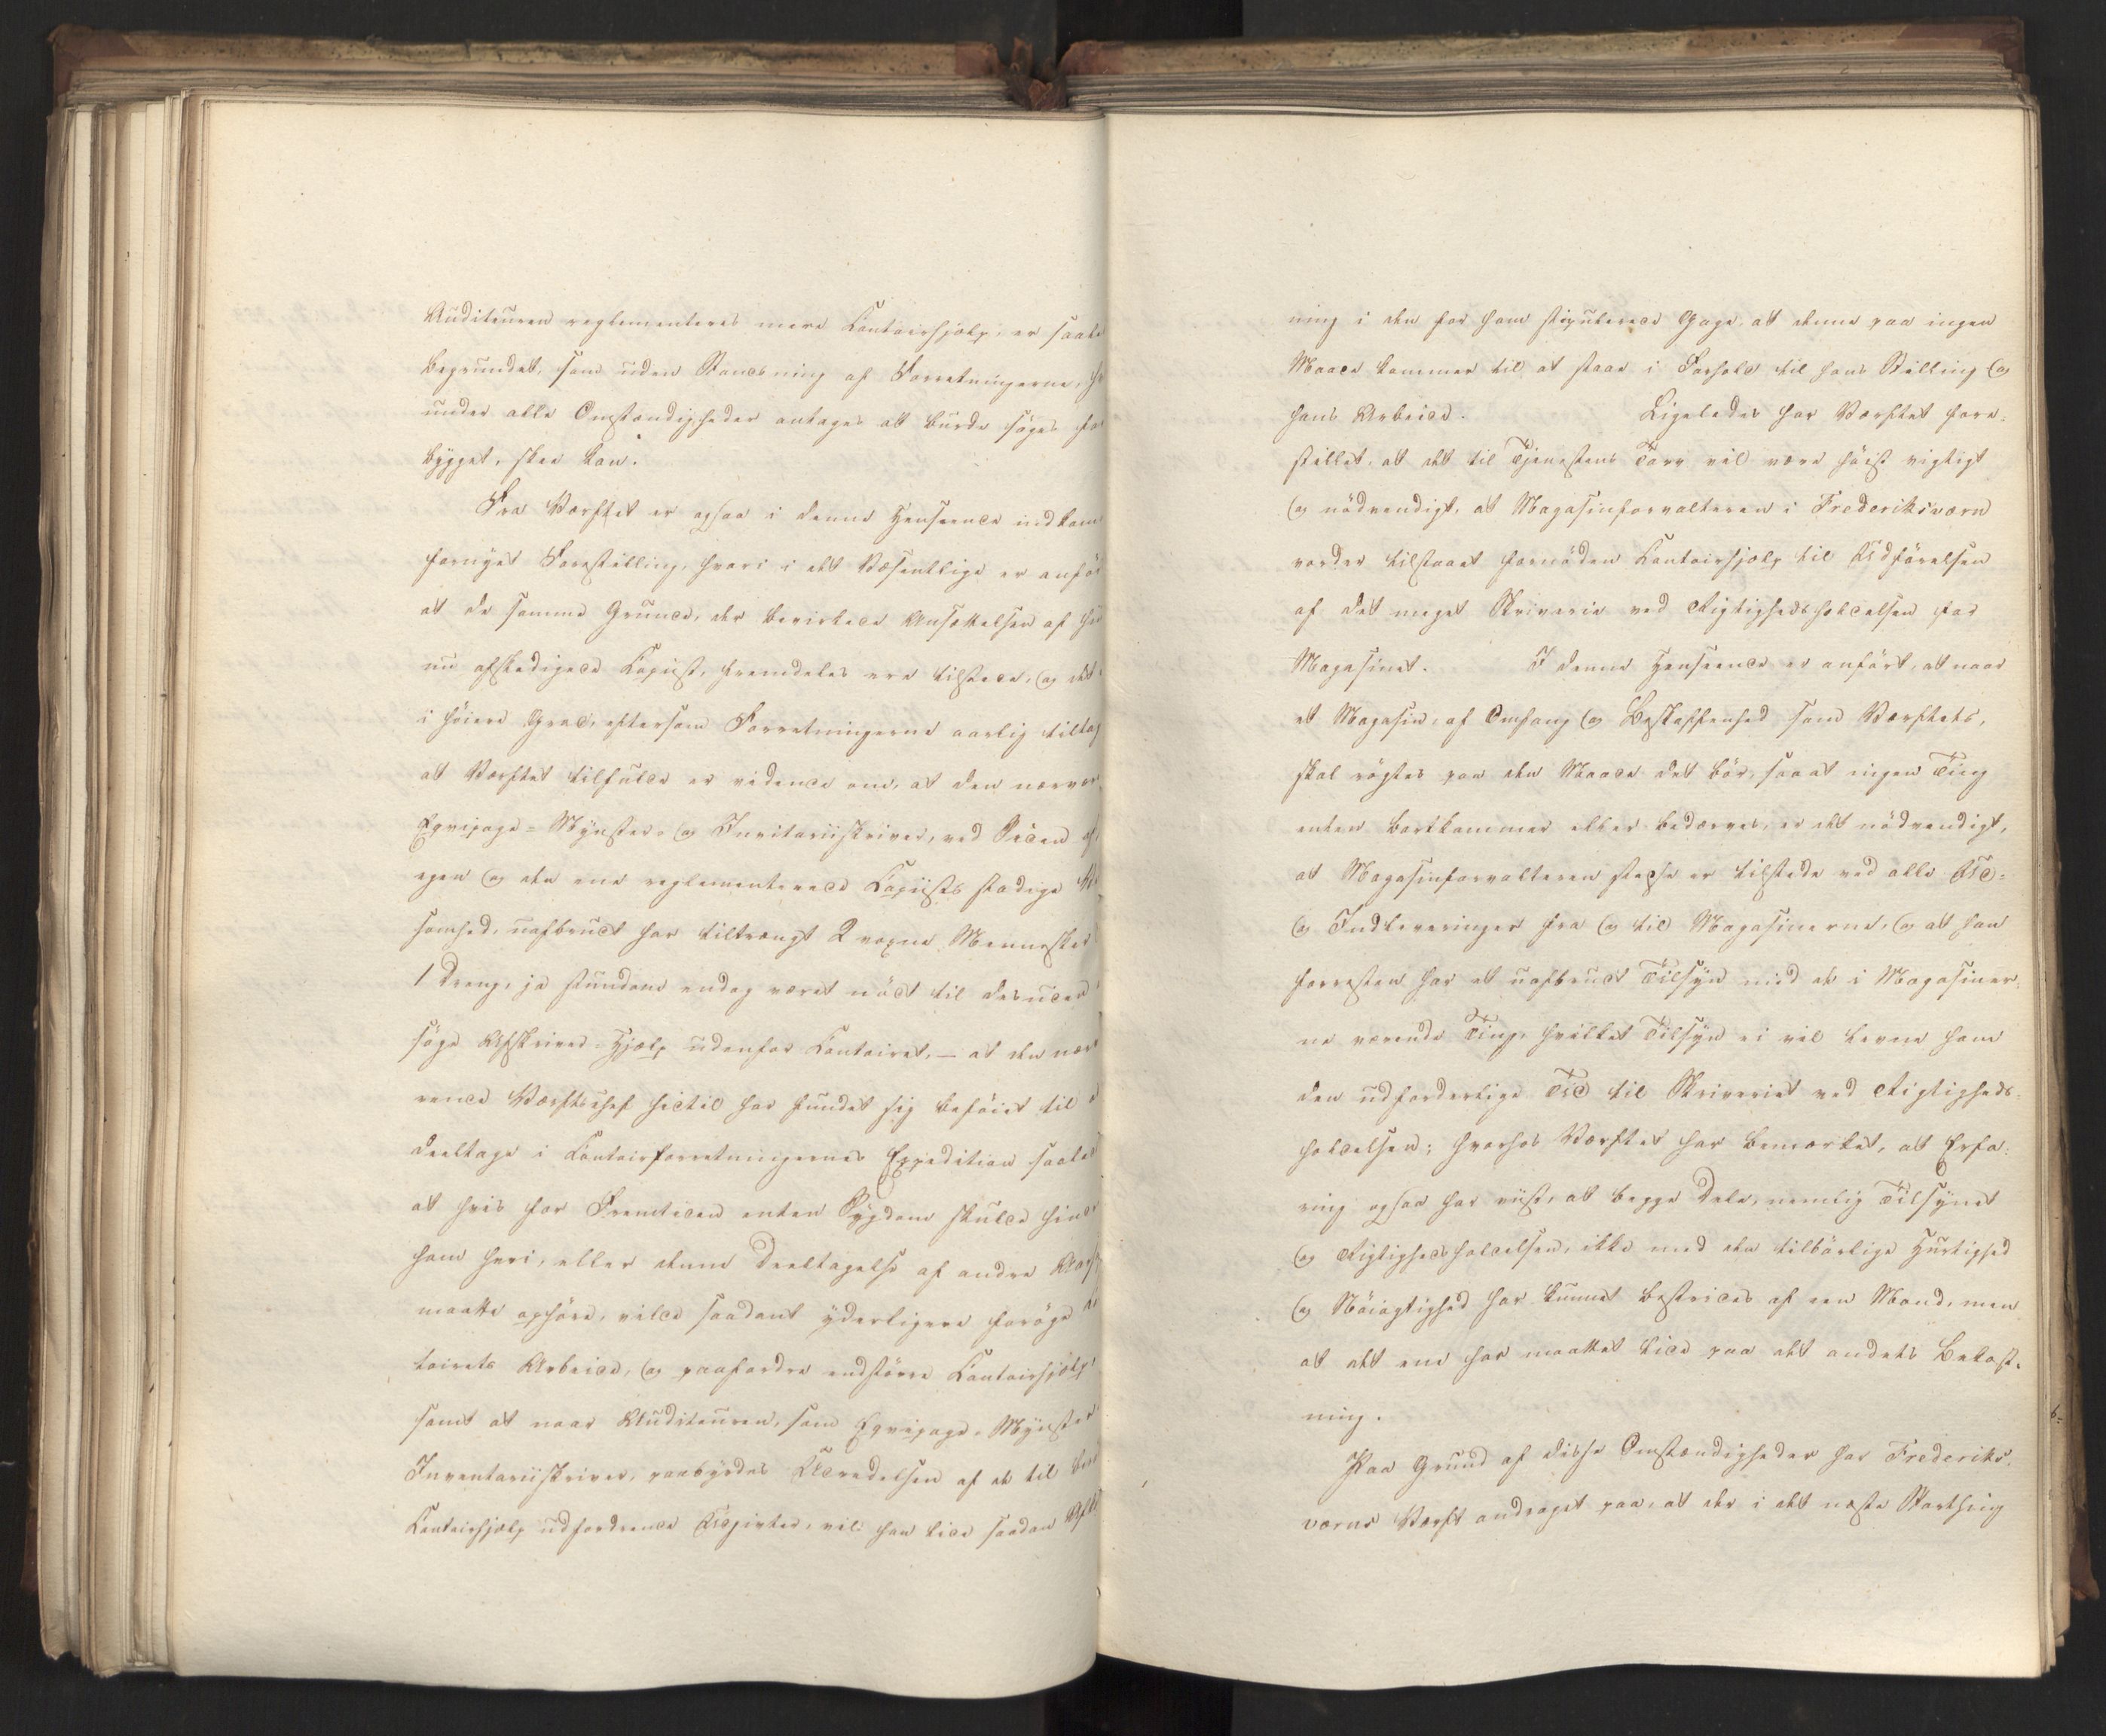 Auditeuren reglementeres mere Contoirhjælp, er saale
begrundet, som uden Standsning af Forretningerne, h
under alle Omstændigheder antages at burde søges for
bygget, skee kan.
Fra Værftet er ogsaa i denne Henseende indkom
fornyet Forestilling, hvori i det Væsentlige er anfør
at de samme Grunde, der bevirkede Ansættelsen af h
nu afskedigede Copiist, fremdeles ere tilstede, og det
i høiere Grad, eftersom Forretningerne aarlig tiltag
at Værftet tilfulde er vidende om, at den nærvær
Eqvipage- Mynster- og Inventariiskriver, ved Siden af
egen og den ene reglementerede Copiists stadige
somhed, uafbrudt har tiltrængt 2 voxne Mennesker
1 Dreng, ja stundom endog været nødt til desuden
søge Afskriver-Hjælp udenfor Contoiret, – at den nær
rende Værftschef hidtil har fundet sig beføiet til
deeltage i Contoirforretningernes Expedition saale
at hvis for Fremtiden enten Sygdom skulde hindr
ham heri, eller denne Deeltagelse af andre Aars
maatte ophøre, vilde saadant yderligere forøge
toirets Arbeide, og paafordre endstørre Contoirhjælp
samt at naar Auditeuren, som Eqvipage- Mynster
Inventariiskriver, paabyrdes Udredelsen af de til
Contoirhjælp udfordrende Udgivter, vil han lide saadan
ning i den for ham stipulerede Gage, at denne paa ingen
Maade kommer til at staae i Forhold til hans Stilling og
hans Arbeide. Ligeledes har Værftet fore-
stillet, at det til Tjenestens Tarv vil være høist vigtigt
og nødvendigt, at Magasinforvalteren i Frederiksværn
vorder tilstaaet fornøden Contoirhjælp til Udførelsen
af det meget Skriverie ved Rigtighedsholdelsen for
Magasinet. I denne Henseende er anført, at naar
et Magasin, af Omfang og Beskaffenhed som Værftets,
skal røgtes paa den Maade det bør, saaat ingen Ting
enten bortkommer eller bedærves, er det nødvendigt,
at Magasinforvalteren stedse er tilstede ved alle Ud-
og Indleveringer fra og til Magasinerne, og at han
forresten har et uafbrudt Tilsyn med de i Magasiner-
ne værende Ting, hvilket Tilsyn ei vil levne ham
den udfordrerlige Tid til Skriveriet ved Rigtigheds-
holdelsen; hvorhos Værftet har bemærket, at Erfa-
ring ogsaa har viist, at begge Dele, nemlig Tilsynet
og Rigtighedsholdelsen, ikke med den tilbørlige Hurtighed
og Nøiagtighed har kunnet bestrides af een Mand, men
at det ene har maattet lide paa det andets Bekost-
ning.
Paa Grund af disse Omstændigheder har Frederiks-
værns Værft andraget paa, at der i det næste Storthing